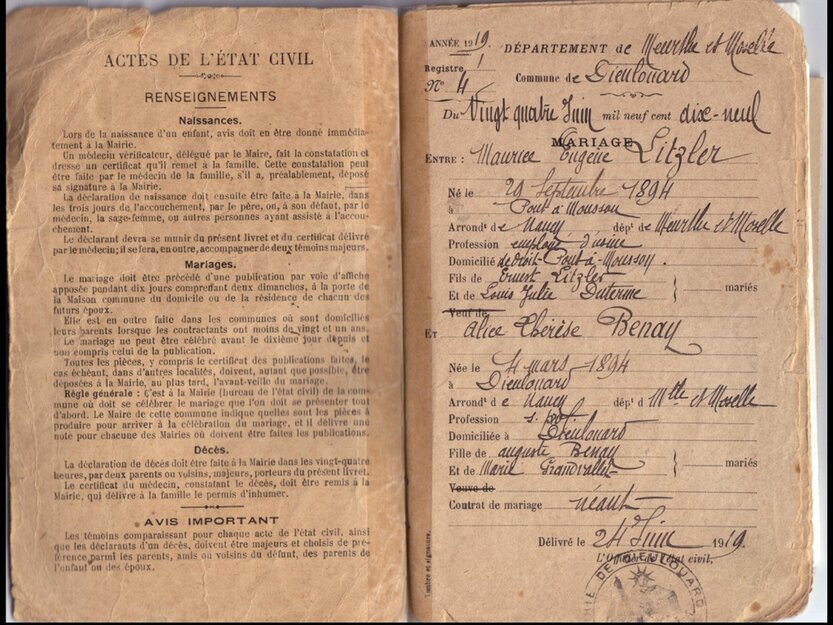 ACTES DE L'ÉTAT CIVIL
RENSEIGNEMENTS
Naissances.
Lors de la naissance d'un enfant, avis doit en être donné immédia-
tement à la Mairie.
Un médecin vérificateur, délégué par le Maire, fait la constatation et
dresse un certificat qu'il remet à la famille. Cette constatation peut
être faite par le médecin de la famille, s'il a, préalablement, déposé
sa signature à la Mairie.
La déclaration de naissance doit ensuite être faite à la Mairie, dans
les trois jours de l'accouchement, par le père, ou, à son défaut, par le
médecin, la sage-femme, ou autres personnes ayant assisté à l'accou-
chement.
Le déclarant devra se munir du présent livret et du certificat délivré
par le médecin; il se fera, en outre, accompagner de deux témoins majeurs.
Mariages.
Le mariage doit être précédé d'une publication par voie d'affiche
apposée pendant dix jours comprenant deux dimanches, à la porte de
la Maison commune du domicile ou de la résidence de chacun des
futurs époux.
Elle est en outre faite dans les communes où sont domiciliés
leurs parents lorsque les contractants ont moins de vingt et un ans.
Le mariage ne peut être célébré avant le dixième jour depuis et
non compris celui de la publication.
Toutes les pièces, y compris le certificat des publications faites, le
cas échéant, dans d'autres localités, doivent, autant que possible, être
déposées à la Mairie, au plus tard, l'avant-veille du mariage.
Règle générale : C'est à la Mairie (bureau de l'état civil) de la com-
mune où doit se célébrer le mariage que l'on doit se présenter tout
d'abord. Le Maire de cette commune indique quelles sont les pièces à
produire pour arriver à la célébration du mariage, et il délivre une
note pour chacune des Mairies où doivent être faites les publications.
Décès.
La déclaration de décès doit être faite à la Mairie dans les vingt-quatre
heures, par deux parents ou voisins, majeurs, porteurs du présent livret.
Le certificat du médecin, constatant le décès, doit être remis à la
Mairie, qui délivre à la famille le permis d'inhumer.
AVIS IMPORTANT
Les témoins comparaissant pour chaque acte de l'état civil, ainsi
que les déclarants d'un décès, doivent être majeurs et choisis de pré-
férence parmi les parents, amis ou voisins du défunt, des parents de
l'enfant ou des époux.
ANNÉE 1919.
DÉPARTEMENT de Meurthe et Moselle
Registre 1
Commune de Dieulouard
N° 4
Du Vingt quatre Juin mil neuf cent dix-neuf
MARIAGE
ENTRE : Maurice Eugène Litzler
Né le 20 Septembre 1894
à Pont à Mousson
Arrondt de Nancy dépt de Meurthe et Moselle
Profession employé d'usine
Domicilié de droit Pont-à-Mousson.
Fils de Ernest Litzler
Et de Louis Julie Duterme } mariés
Veuf de
ET Alice Thérèse Benay
Née le 4 mars 1894
à Dieulouard
Arrondt de Nancy dépt d Mthe et Moselle
Profession s. pon
Domiciliée à Dieulouard
Fille de auguste Benay
Et de Marie Grandvallet } mariés
Veuve de
Contrat de mariage neant
Délivré le 24 Juin 1919.
L'Officier de l'état civil.
Timbre et signature.
MAIRIE DE DIEULOUARD